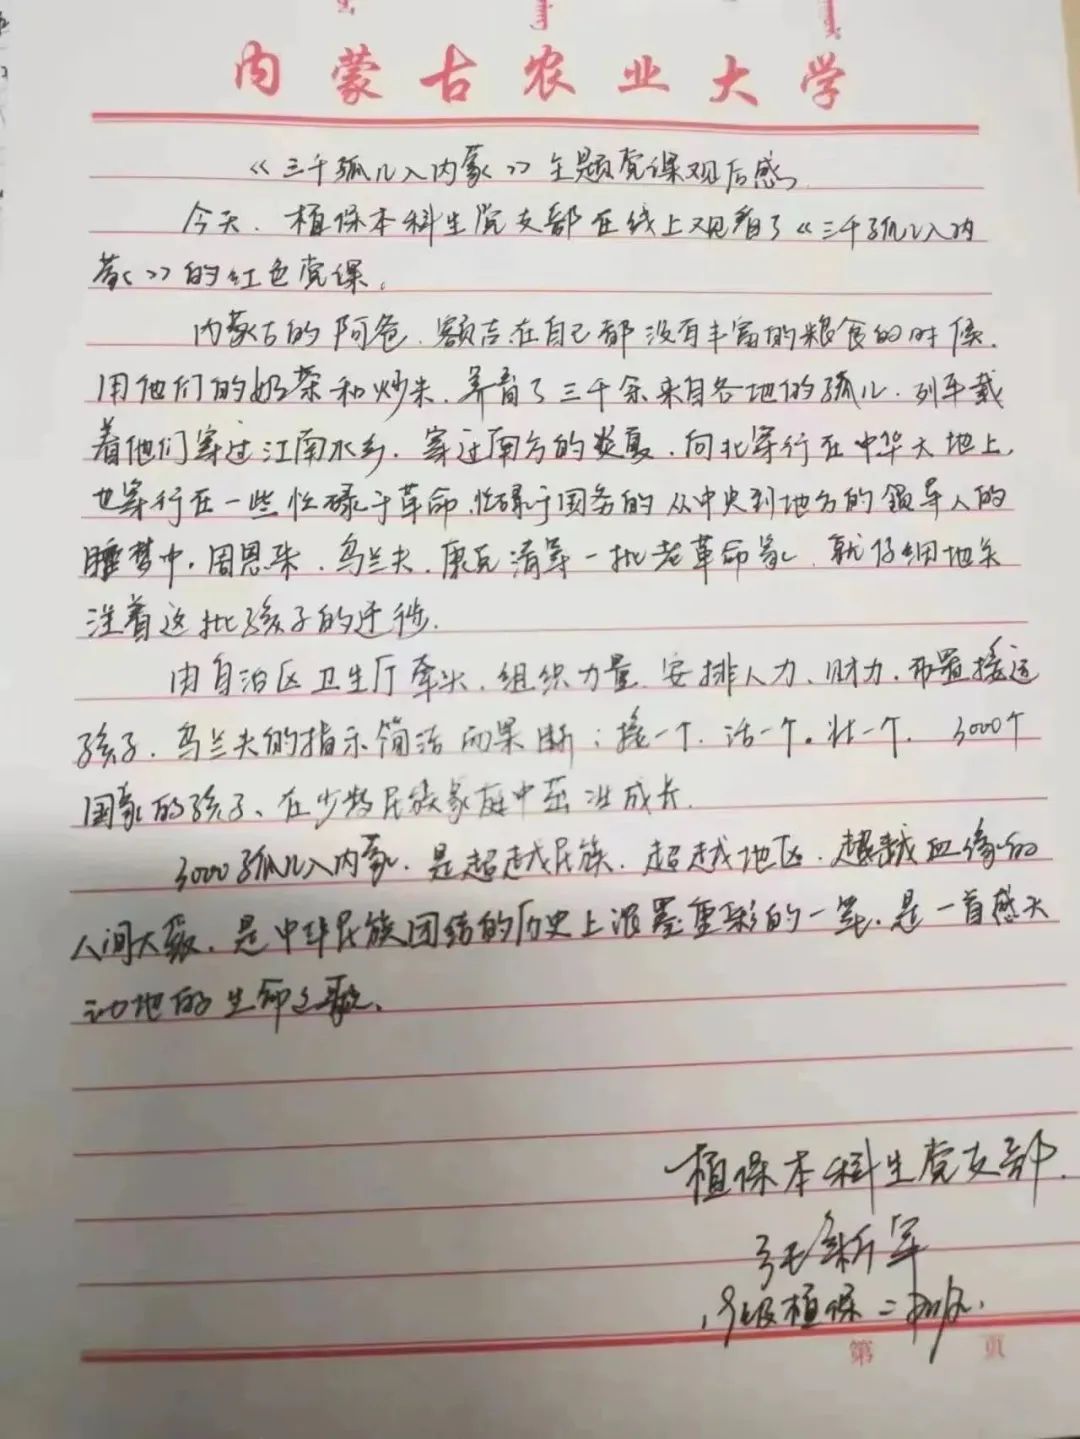 内蒙古农业大学
《三千孤儿入内蒙》主题党课观后感
今天,植保本科生党支部在线上观看了《三千孤儿入内
蒙》的红色党课。
内蒙古的阿爸、额吉在自己都没有丰富的粮食的时候,
用他们的奶茶和炒米,养育了三千余来自各地的孤儿.列车载
着他们穿过江南水乡,穿过南方的炎夏,向北穿行在中华大地上,
也穿行在一些忙碌于革命、忙碌于国务的从中央到地方的领导人的
睡梦中。周恩来、乌兰夫、康克清等一批老革命家,就仔细地关
注着这批孩子的迁徙.
由自治区卫生厅牵头,组织力量,安排人力、财力,布置接运
孩子,乌兰夫的指示简洁而果断:接一个、活一个。壮一个,3000个
国家的孩子、在少数民族家庭中茁壮成长.
3000孤儿入内蒙,是超越民族,超越地区,超越血缘的
人间大爱,是中华民族团结的历史上浓墨重彩的一笔,是一首感天
动地的生命之歌.
植保本科生党支部.
新军
级植保二班
第 页